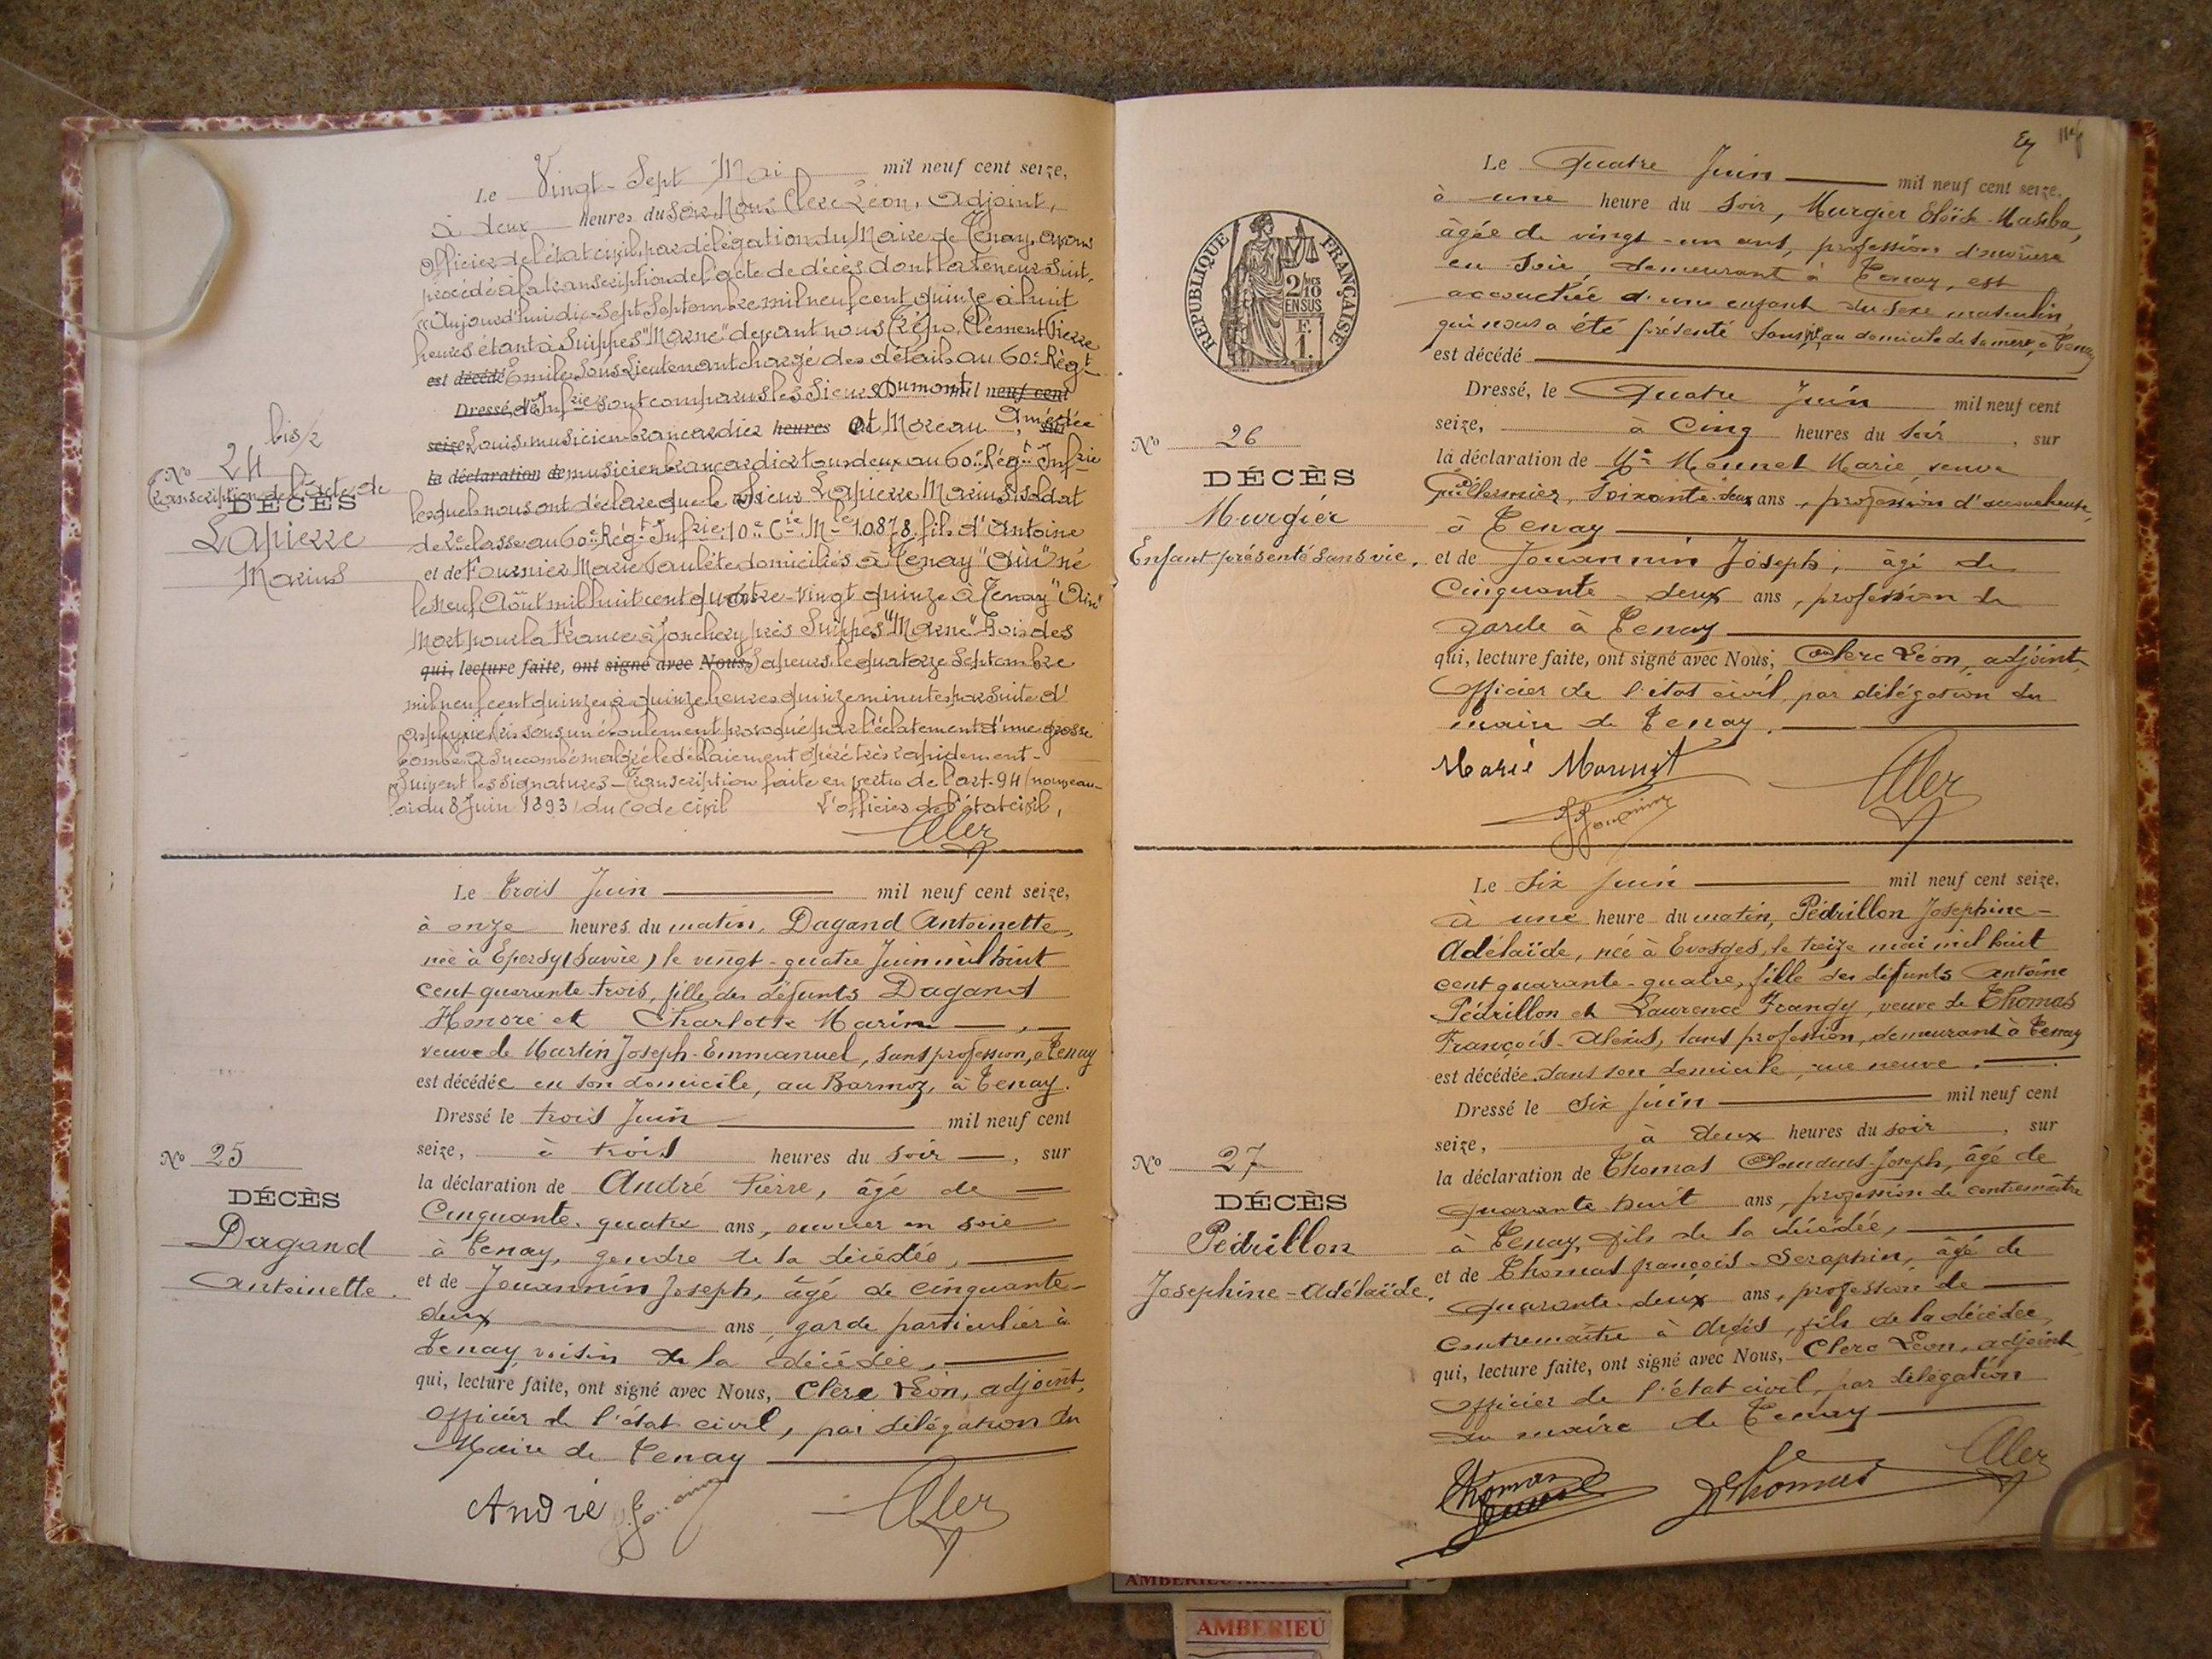 Le Vingt-Sept Mai mil neuf cent seize,
à deux heures du soir, Nous Clerc Léon, Adjoint,
Officier de l'état civil, par délégation du Maire de Tenay, avons
procédé à la transcription de l'acte de décès dont la teneur suit.
"Aujourd'hui dix-Sept Septembre mil neuf cent quinze à huit
heures étant à Suippes "Marne" devant nous Clément Pierre
est décédé Emile Sous Lieutenant chargé des détails au 60e Régt
Dressé, d'Infrie sont comparus les Sieurs Dumont mil neuf cent
seize Louis musicien brancardier heures et Moreau Amédée, sur
la déclaration de musicien brancardier tous deux au 60e Régt Infrie
lesquels nous ont déclaré que le sieur Lapierre Marius soldat
de 2e classe au 60e Régt Infrie 10e Cie Mle 10.878, fils d'Antoine
et de Fournier Marie domiciliés à Tenay "Ain" né
le neuf Août mil huit cent quatre-vingt quinze à Tenay "Ain"
Mort pour la France à Jonchery près Suippes "Marne" Bois des
qui, lecture faite, ont signé avec Nous, Sapeurs le quatorze Septembre
mil neuf cent quinze à quinze heures quinze minutes par suite d'
asphyxie pris sous un éboulement provoqué par l'éclatement d'une grosse
bombe a succombé malgré le déblaiement opéré très rapidement -
Suivent les signatures - Transcription faite en vertu de l'art. 94 (nouveau-
loi du 8 Juin 1893) du Code civil L'officier de l'état civil,
bis/2
No 24
Transcription de l'acte de
DÉCÈS
Lapierre
Marius
Le trois Juin mil neuf cent seize,
à onze heures du matin, Dagand Antoinette,
née à Epersy (Savoie) le vingt-quatre Juin mil huit
cent quarante trois, fille des défunts Dagand
Honoré et Charlotte Marin,
veuve de Martin Joseph-Emmanuel, sans profession, à Tenay
est décédée en son domicile, au Barmoz, à Tenay.
Dressé le trois Juin mil neuf cent
seize, à trois heures du soir, sur
la déclaration de André Pierre, âgé de
Cinquante-quatre ans, ouvrier en soie
à Tenay, gendre de la décédée,
et de Jouannin Joseph, âgé de cinquante-
deux ans, garde particulier à
Tenay, voisin de la décédée,
qui, lecture faite, ont signé avec Nous, Clerc Léon, adjoint,
Officier de l'état civil, par délégation du
Maire de Tenay
André
No 25
DÉCÈS
Dagand
Antoinette.
Le Quatre Juin mil neuf cent seize.
à une heure du soir, Murgier Eloïse
âgée de vingt-un ans, profession d'ouvrière
en soie, demeurant à Tenay, est
accouchée d'une enfant du sexe masculin,
qui nous a été présenté sans vie, au domicile de sa mère, à Tenay
est décédé
Dressé, le Quatre Juin mil neuf cent
seize, à Cinq heures du soir, sur
la déclaration de Me Monnet Marie, veuve
Guillermier, soixante-deux ans, profession d'accoucheuse,
à Tenay
et de Jouannin Joseph, âgé de
Cinquante-deux ans, profession de
garde à Tenay
qui, lecture faite, ont signé avec Nous, Clerc Léon, adjoint,
Officier de l'état civil, par délégation du
maire de Tenay.
Marie Monnet
RÉPUBLIQUE FRANÇAISE
2/10
EN SUS
F.
1.
No 26
DÉCÈS
Murgier
Enfant présenté sans vie.
Le Six juin mil neuf cent seize,
à une heure du matin, Pédrillon Josephine-
Adélaïde, née à Evosges, le treize mai mil huit
cent quarante-quatre, fille des défunts Antoine
Pédrillon et Laurence Frangy, veuve de Thomas
François-Alexis, sans profession, demeurant à Tenay
est décédée dans son domicile, rue neuve.
Dressé le Six juin mil neuf cent
seize, à deux heures du soir, sur
la déclaration de Thomas Claudius-Joseph, âgé de
quarante-huit ans, profession de contremaître
à Tenay, fils de la décédée,
et de Thomas françois-Seraphin, âgé de
quarante-deux ans, profession de
Contremaître à Argis, fils de la décédée,
qui, lecture faite, ont signé avec Nous, Clerc Léon, adjoint
Officier de l'état civil, par délégation
du maire de Tenay
Thomas
Thomas
No 27
DÉCÈS
Pédrillon
Josephine-Adélaïde.
AMBERIEU